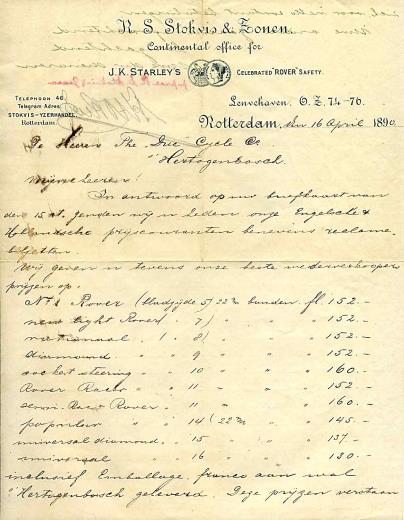 R. S. Stokvis & Zonen
Continental office for
J.K. STARLEY'S CELEBRATED "ROVER" SAFETY.
TELEPHOON 46.
Telegram Adres:
STOKVIS-YZERHANDEL
Rotterdam.
Leuvehaven. O.Z. 74-76.
Rotterdam, den 16 April 1890.
De Heeren The Cycle Co.
's Hertogenbosch.
Mijne Heeren!
In antwoord op uw briefkaart van
den 15 zenden wij u heden onze Engelsche &
Hollandsche prijscouranten benevens reclame
biljetten.
Wij geven u tevens onze beste wederverkoopers
prijzen op.
No 1 Rover (bladzijde 5) 22 m banden fl. 152.-
new light Rover " 7) " " " 152.-
national " 8) " " " 152.-
diamond " 9 " " " 152.-
socket steering " 10 " " " 160.-
Rover Racer " 11 " " " 152.-
Rover " 11 " " " 160.-
popular " " 14 (22 m " " 145.-
universal diamond " 15 " " " 137.-
universal " 16 " " " 130.-
inclusief Emballage, franco aan wal
's Hertogenbosch geleverd. Deze prijzen verstaan